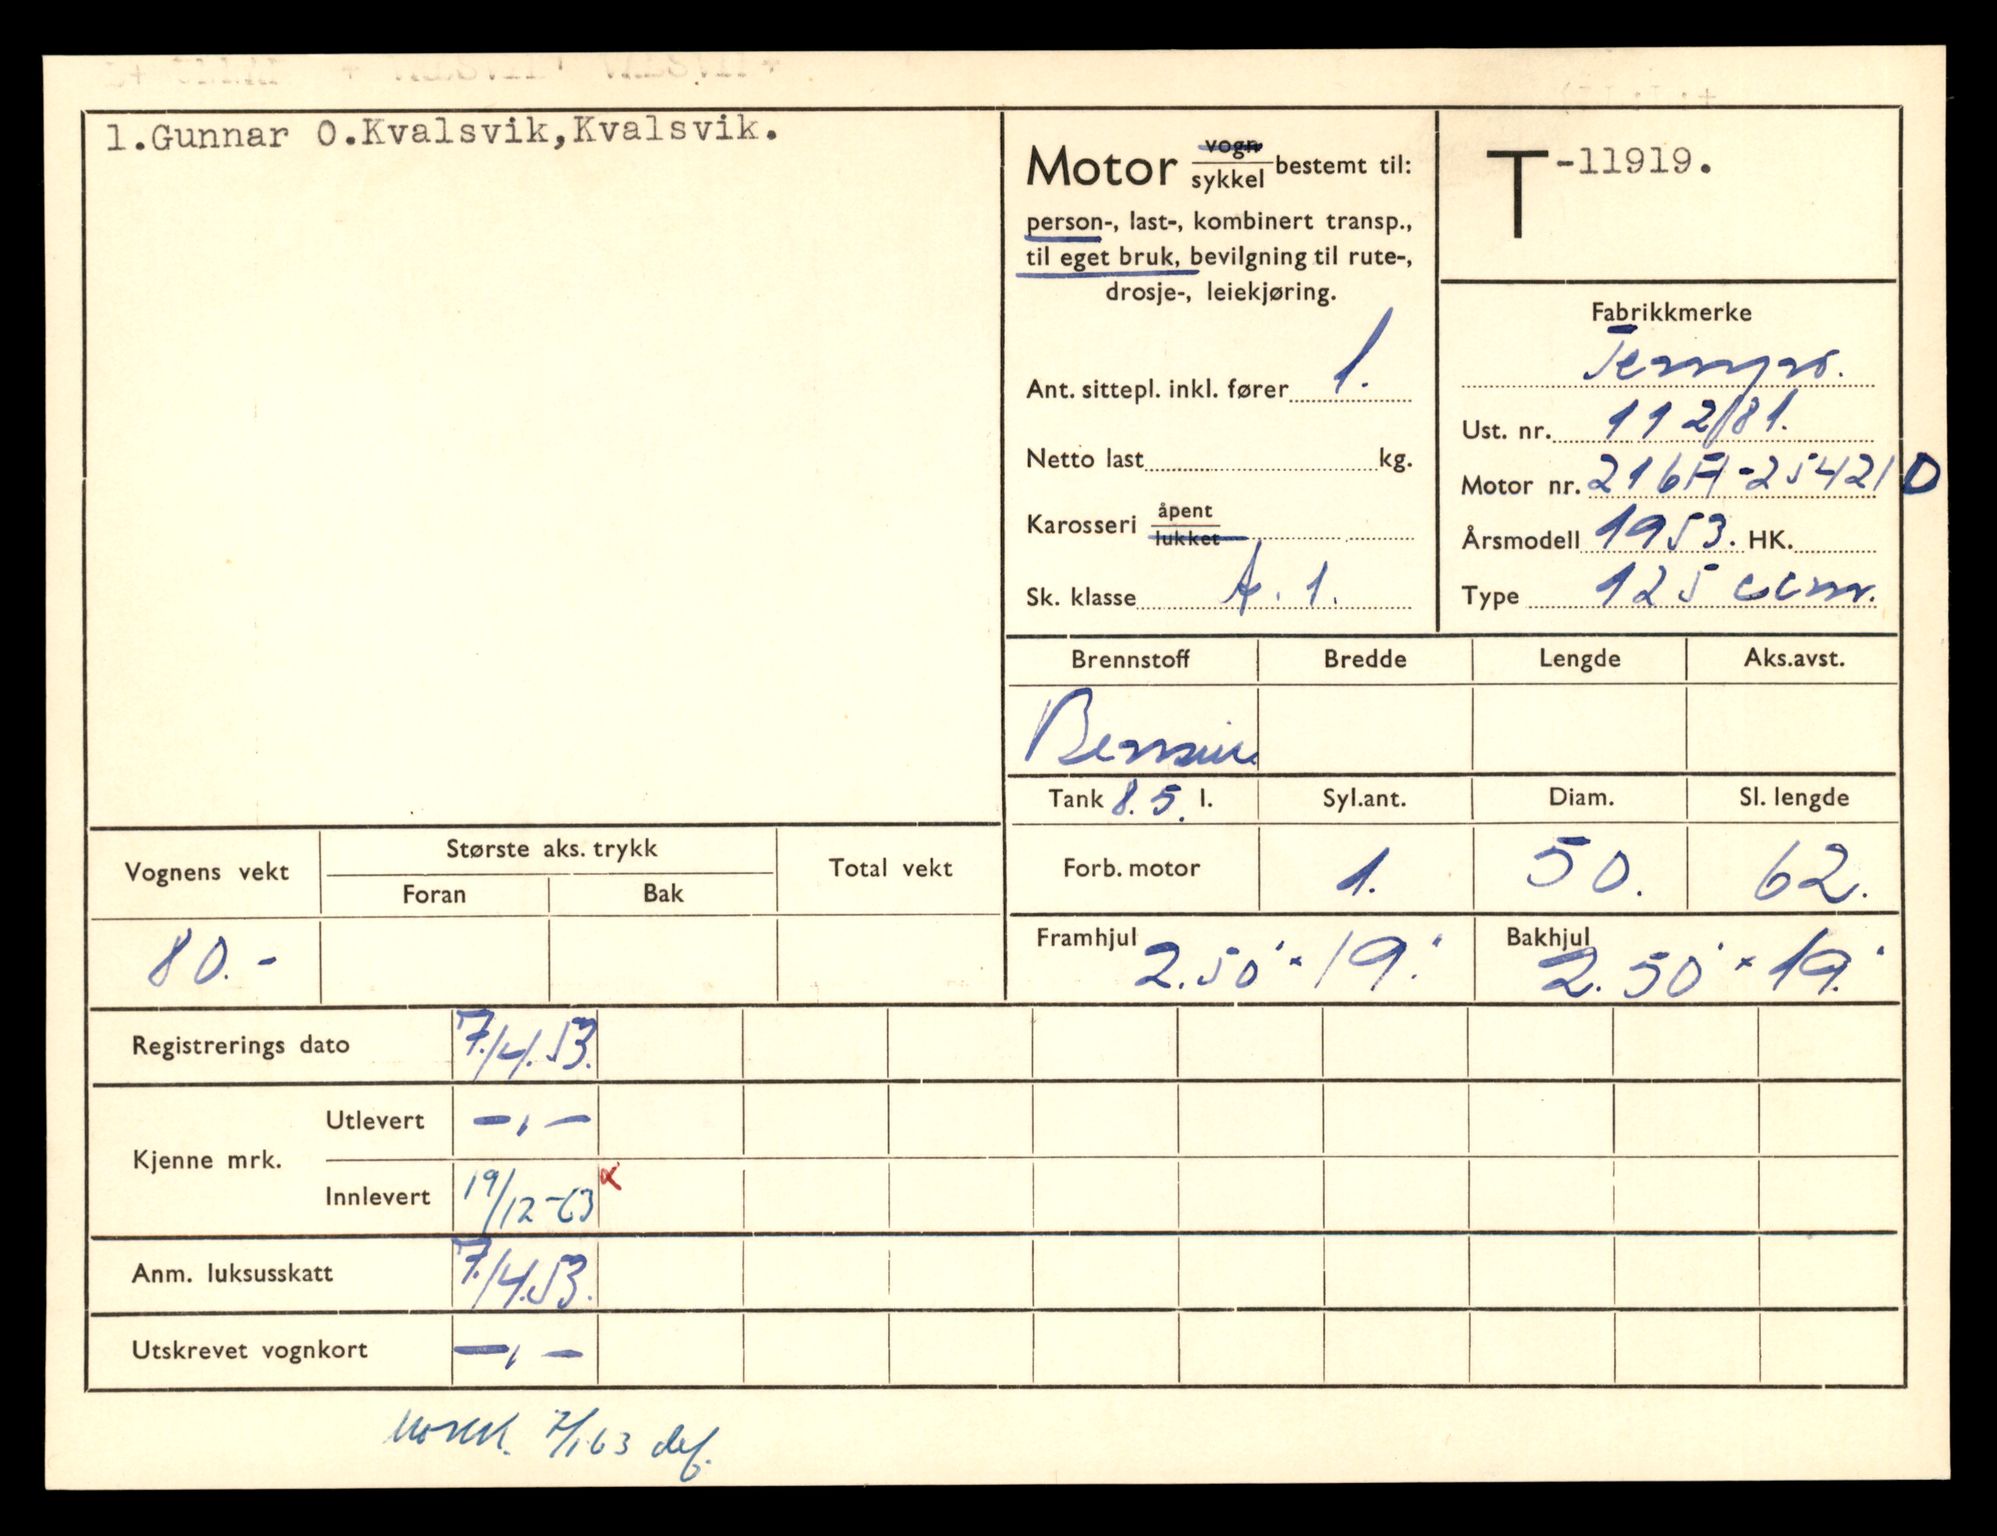 1.Gunnar O.Kvalsvik,Kvalsvik.
Motor vogn sykkel bestemt til:
person-, last-, kombinert transp.,
til eget bruk, bevilgning til rute-,
drosje-, leiekjøring.
Ant. sittepl. inkl. fører 1.
Netto last kg.
Karosseri åpent lukket
Sk. klasse A. 1.
T-11919.
Fabrikkmerke
Tempo.
Ust. nr. 112181.
Motor nr. 216A-254210
Årsmodell 1953. HK.
Type 125 ccm.
Brennstoff Bredde Lengde Aks.avst.
Bensin
Tank 8.5. l. Syl.ant. Diam. Sl. lengde
Forb. motor 1. 50. 62.
Framhjul 2.50" × 19." Bakhjul 2.50" × 19."
Vognens vekt Største aks. trykk Total vekt
Foran Bak
80.-
Registrerings dato 7./4.53.
Kjenne mrk. Utlevert —,—
Innlevert 19/12-63 x
Anm. luksusskatt 7./4.53.
Utskrevet vognkort —,—
7/1.63 def.